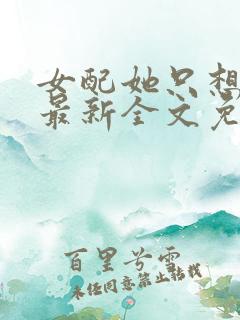 女配她只想
最新全文免
百里兮雪
未经同意禁止转载